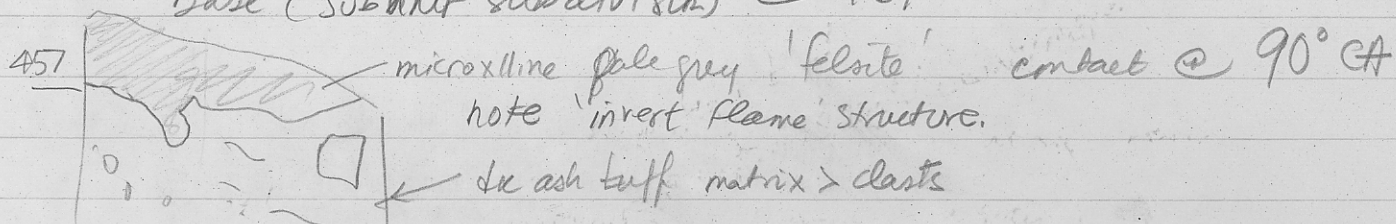 Base (subunit subdivision)
457 microxlline pale grey 'felsite' contact @ 90° CA
note 'invert' flame structure.
ash tuff matrix > clasts